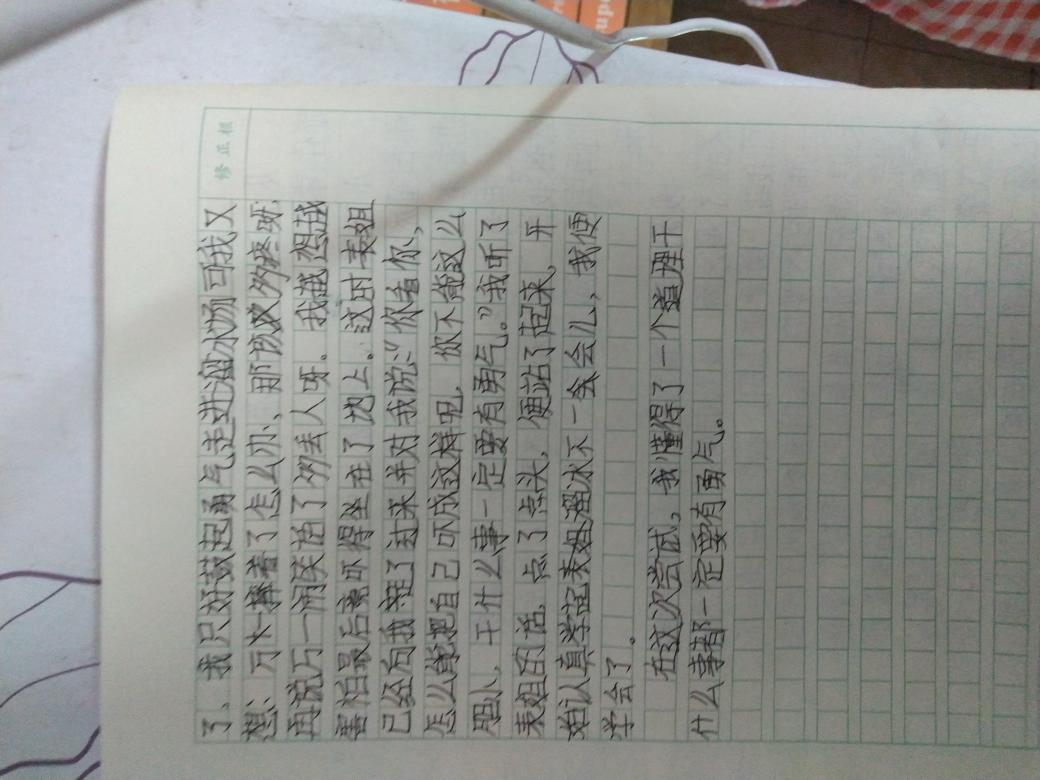 修正栏
了、我只好鼓起勇气走进溜冰场可我又
想:万一摔着了怎么办、那该多疼呀.
再说万一闹笑话了多丢人呀。我越想越
害怕最后索吓得坐在了地上。这时表姐
已经向我走了过来并对我说:"你看你,
怎么能把自己吓成这样呢,你不能这么
胆小、干什么事一定要有勇气。"我听了
表姐的话,点了点头,便站了起来,开
始认真学定表姐溜冰不一会会儿、我便
学会了。
在这次尝试,我懂得了一个道理干
什么事都一定要有勇气。